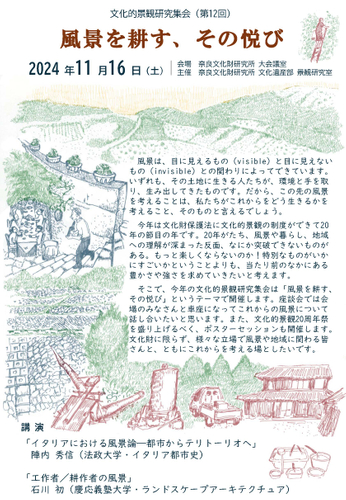 文化的景観研究集会（第12回）
風景を耕す、その悦び
2024 年 11 月 16 日（土）
会場　奈良文化財研究所 大会議室
主催　奈良文化財研究所 文化遺産部 景観研究室
風景は、目に見えるもの（visible）と目に見えない
もの（invisible）との関わりによってできています。
いずれも、その土地に生きる人たちが、環境と手を取
り、生み出してきたものです。だから、この先の風景
を考えることは、私たちがこれからをどう生きるかを
考えること、そのものと言えるでしょう。
今年は文化財保護法に文化的景観の制度ができて20
年の節目の年です。20年がたち、風景や暮らし、地域
への理解が深まった反面、なにか突破できないものが
ある。もっと楽しくならないのか！特別なものがいか
にすごいかということよりも、当たり前のなかにある
豊かさや強さを求めていきたいと考えます。
そこで、今年の文化的景観研究集会は「風景を耕す、
その悦び」というテーマで開催します。座談会では会
場のみなさんと車座になってこれからの風景について
話し合いたいと思います。また、文化的景観20周年祭
を盛り上げるべく、ポスターセッションも開催します。
文化財に限らず、様々な立場で風景や地域に関わる皆
さんと、ともにこれからを考える場としたいです。
講 演
「イタリアにおける風景論―都市からテリトーリオへ」
陣内 秀信（法政大学・イタリア都市史）
「工作者／耕作者の風景」
石川 初（慶応義塾大学・ランドスケープアーキテクチュア）